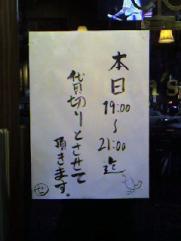 本日
19:00
〜
21:00迄
貸切りとさせて
頂きます。